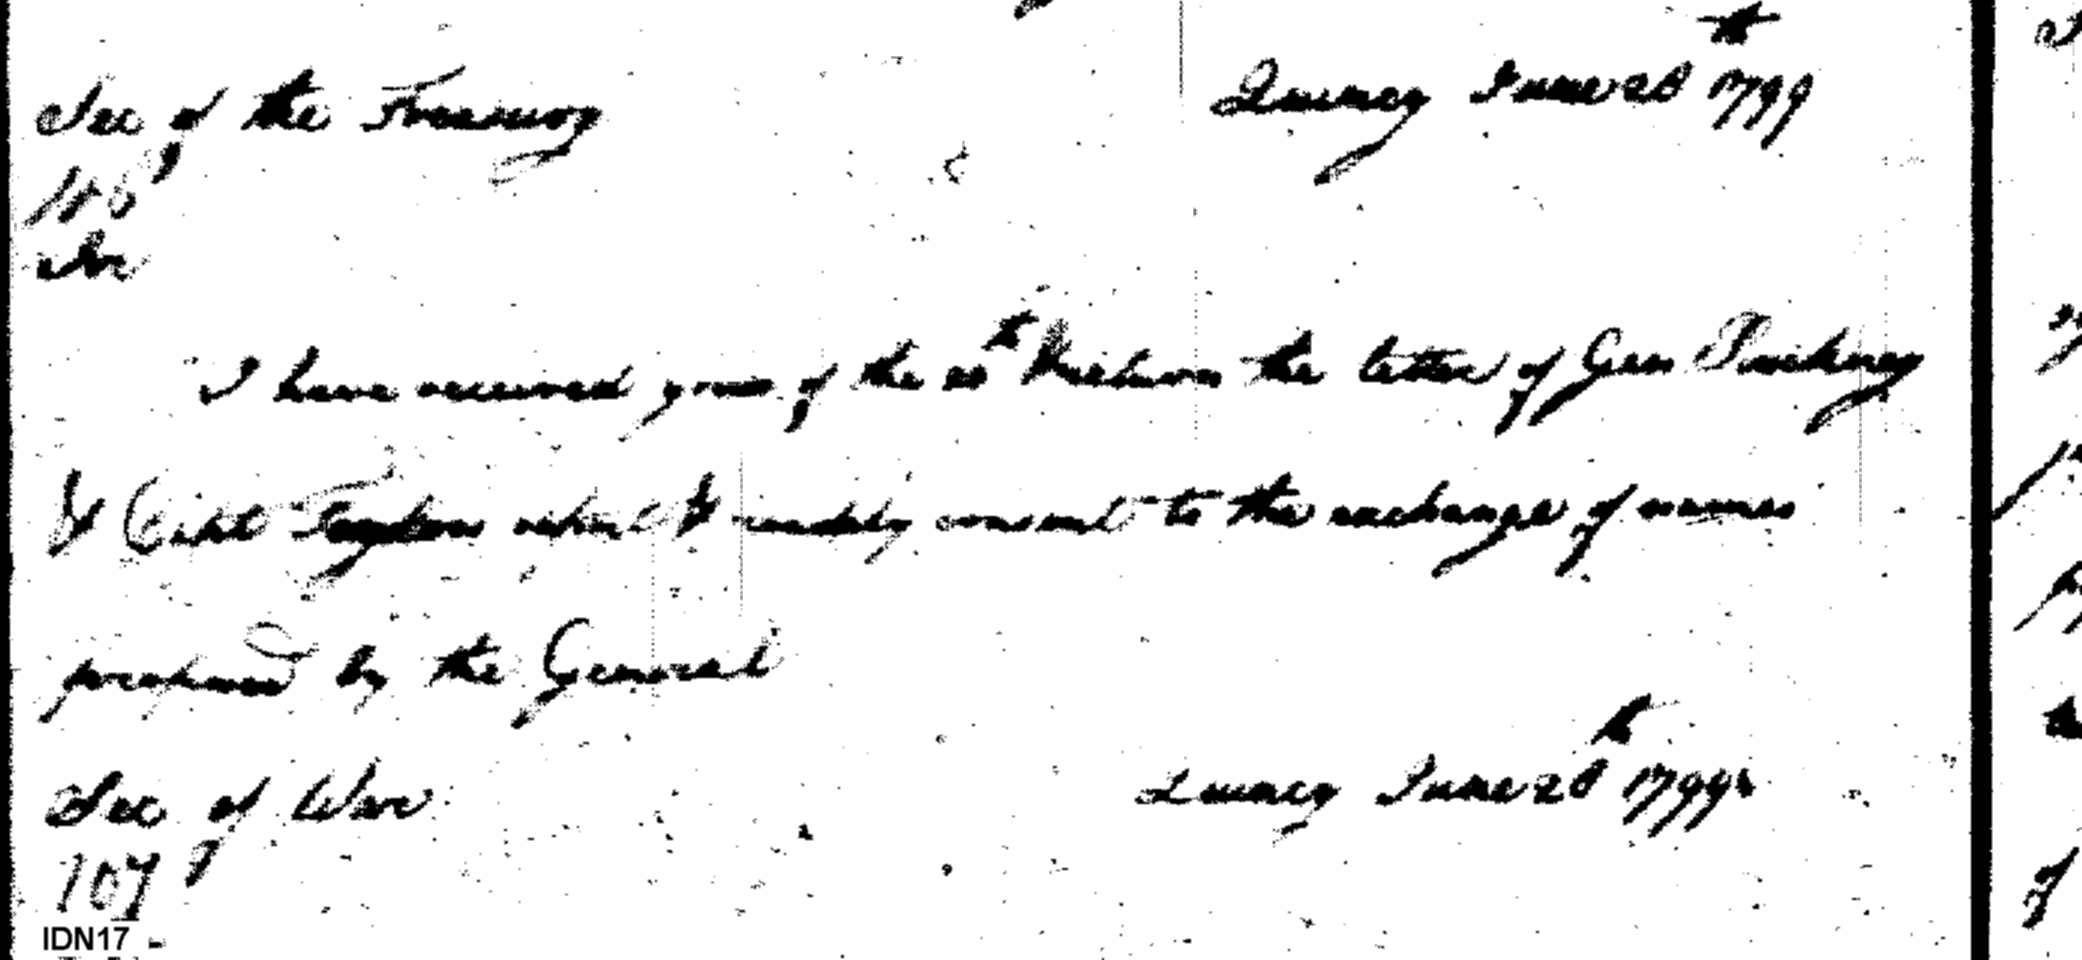 Sec of the Treasury Quincy June 28th 1799
106
Sir
I have received yours of the 20th & return the letter of Gen Pinckney
& Capt Taylor which I readily consent to the exchange of names
proposed by the General
Sec of War Quincy June 28th 1799
107
IDN17